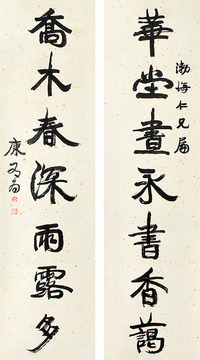 華堂晝永書香藹
渤海仁兄屬
喬木春深雨露多
康有為